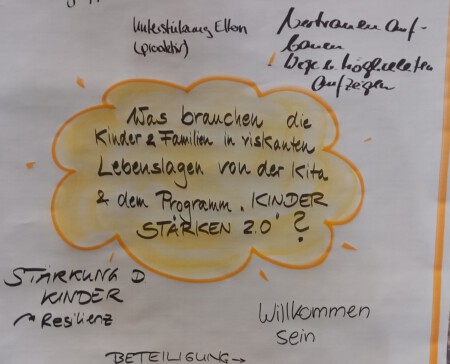 Unterstützung Eltern
(proaktiv)
Vertrauen auf-
bauen
Wege & Möglichkeiten
aufzeigen
Was brauchen die
Kinder & Familien in riskanten
Lebenslagen von der Kita
& dem Programm „KINDER
STÄRKEN 2.0" ?
STÄRKUNG D
KINDER
→ Resilienz
Willkommen
sein
BETEILIGUNG →